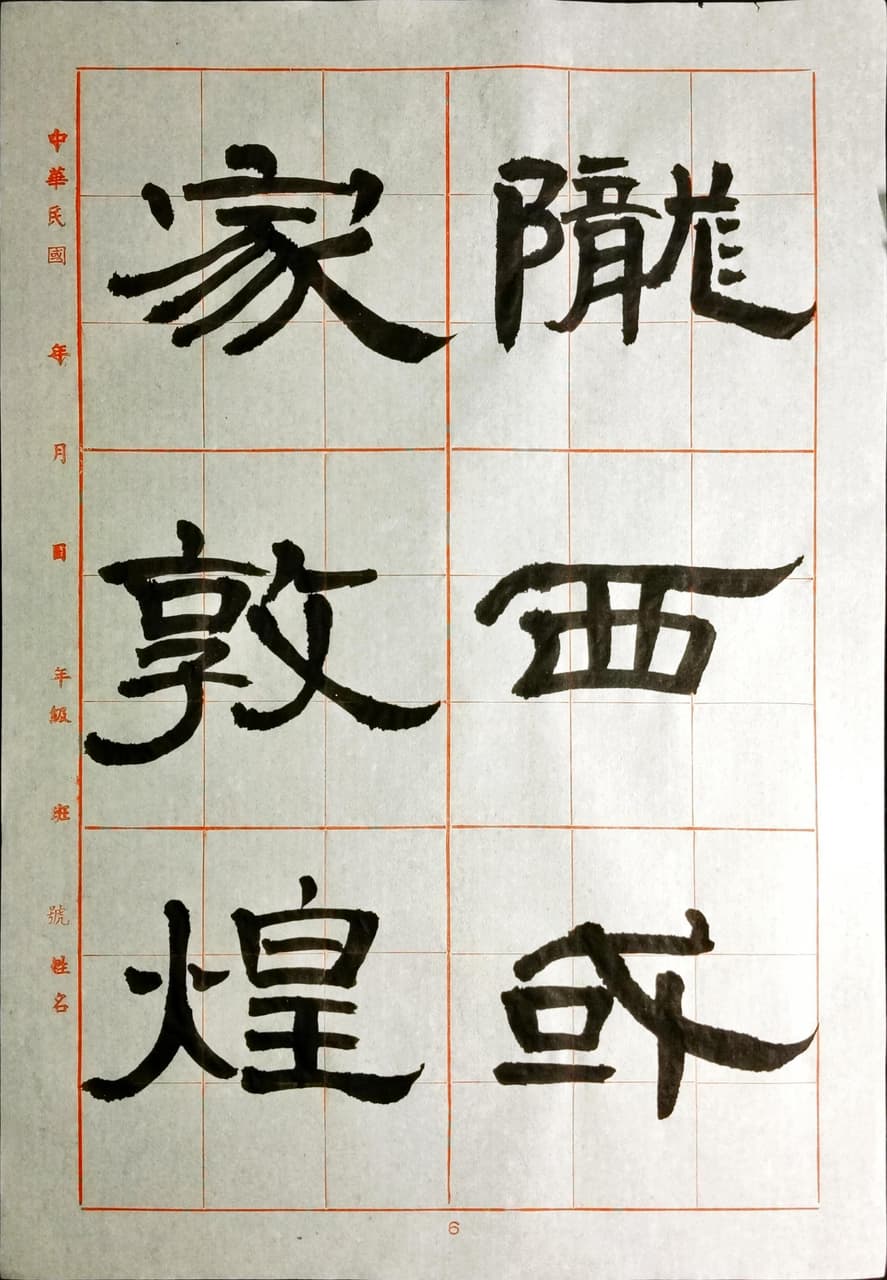 隴西或
家敦煌
中華民國 年 月 日 年級 班 號 姓名
6